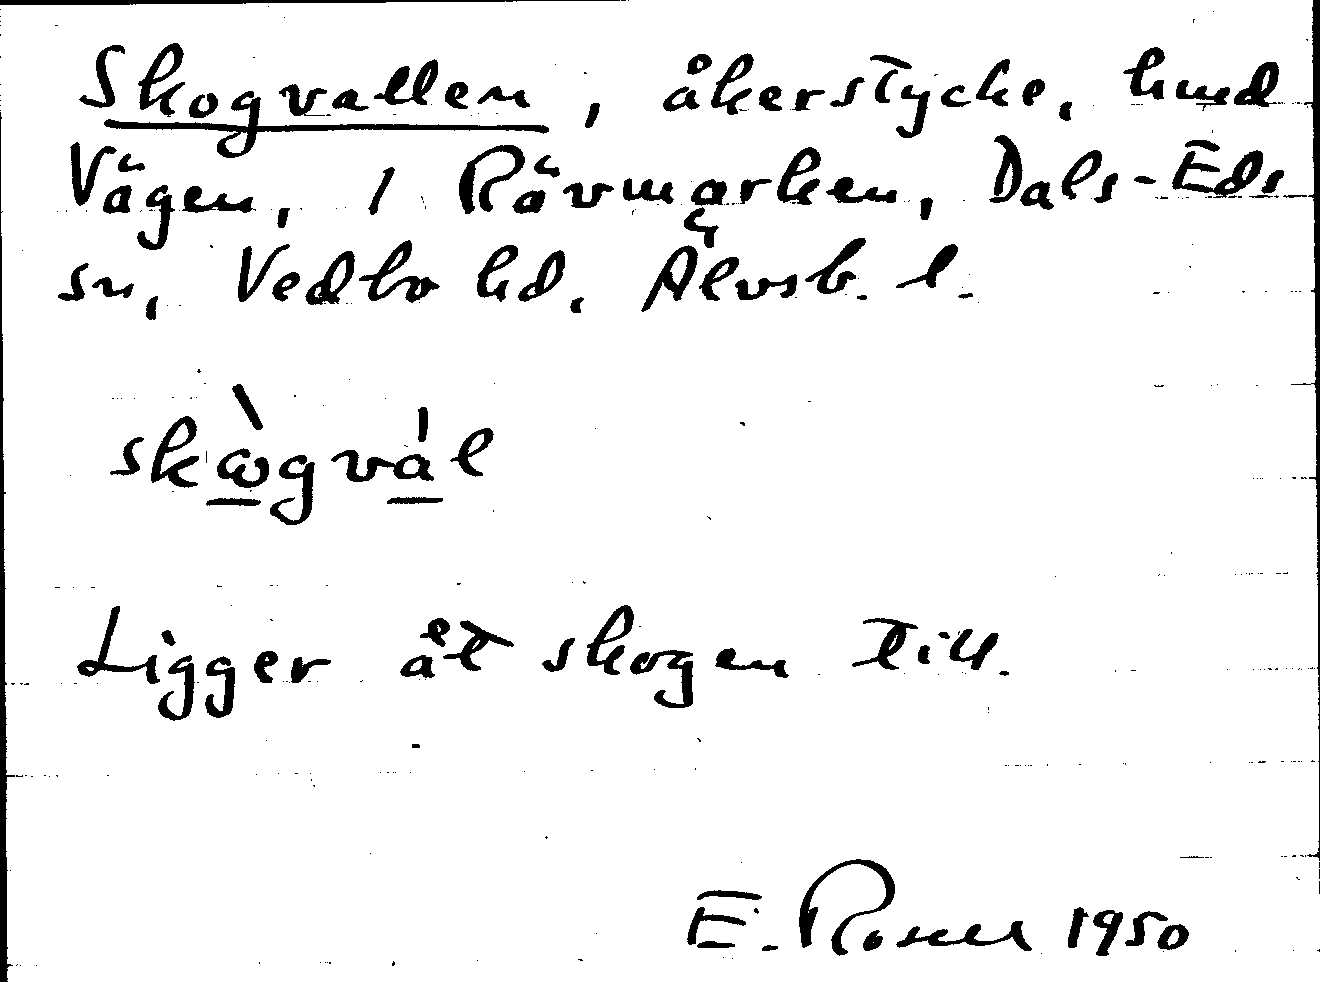 Skogvallen, åkerstycke, hmd
Vägen, 1 Rävmarken, Dals-Eds
sn, Vedbo hd. Älvsb. l.
skògvál
Ligger åt skogen till.
E. Rosell 1950